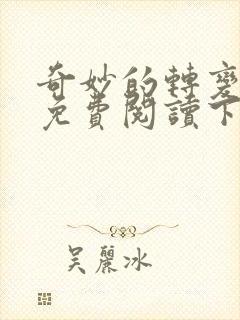 奇妙的轉變
免費閱讀下
吳麗冰